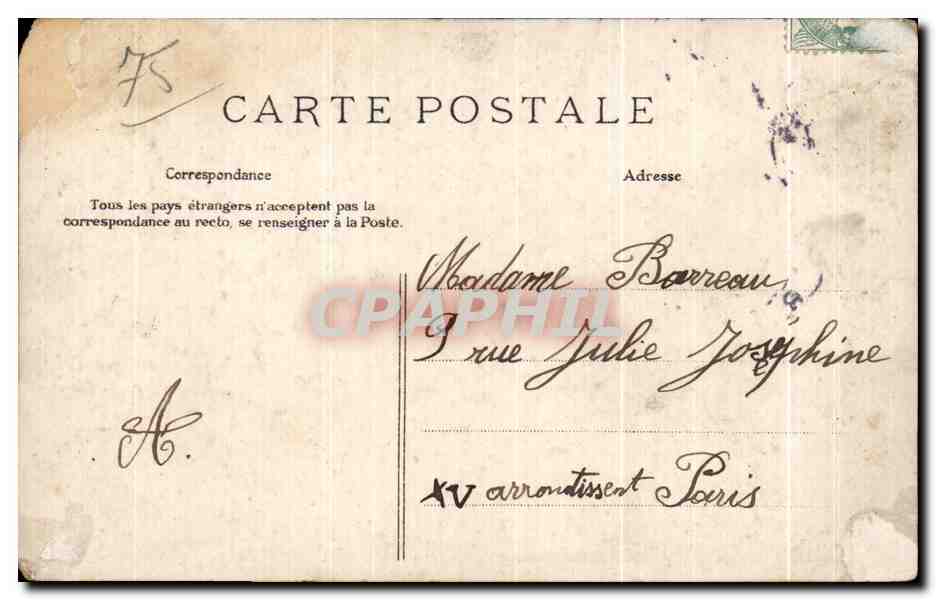 75
CARTE POSTALE
Correspondance
Adresse
Tous les pays étrangers n'acceptent pas la
correspondance au recto, se renseigner à la Poste.
Madame Barreau
9 rue Julie Joséphine
A.
XV arrondissent Paris
CPAPHIL